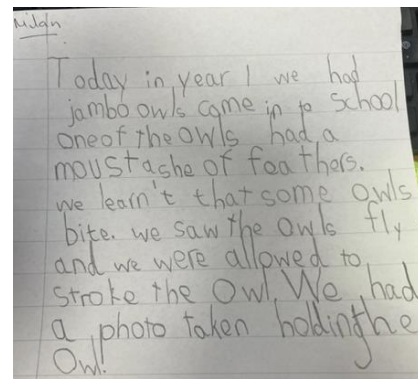 Milan
Today in year 1 we had
jambo owls came in to school
one of the owls had a
moustashe of feathers.
we learn't that some owls
bite. we saw the owls fly
and we were allowed to
stroke the Owl. We had
a photo taken holdingthe
Owl!